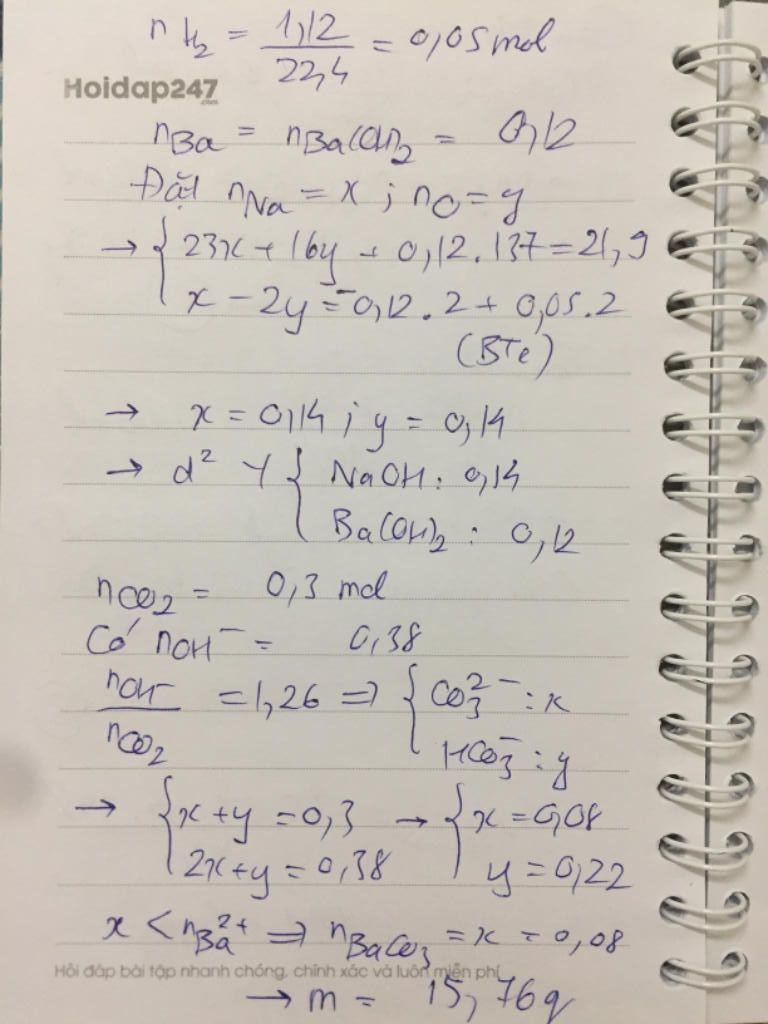 nH₂ = 1,12/22,4 = 0,05 mol
Hoidap247
.com
nBa = nBa(OH)₂ = 0,12
Đặt nNa = x ; nO = y
→ { 23x + 16y + 0,12.137 = 21,9
x - 2y = -0,12.2 + 0,05.2
(BTe)
→ x = 0,14 ; y = 0,14
→ d² Y { NaOH : 0,14
Ba(OH)₂ : 0,12
nCO₂ = 0,3 mol
Có nOH⁻ = 0,38
nOH⁻/nCO₂ = 1,26 => { CO₃²⁻ : x
HCO₃⁻ : y
→ { x + y = 0,3 → { x = 0,08
2x + y = 0,38 y = 0,22
x < nBa²⁺ => nBaCO₃ = x = 0,08
Hỏi đáp bài tập nhanh chóng, chính xác và luôn miễn phí
→ m = 15,76g